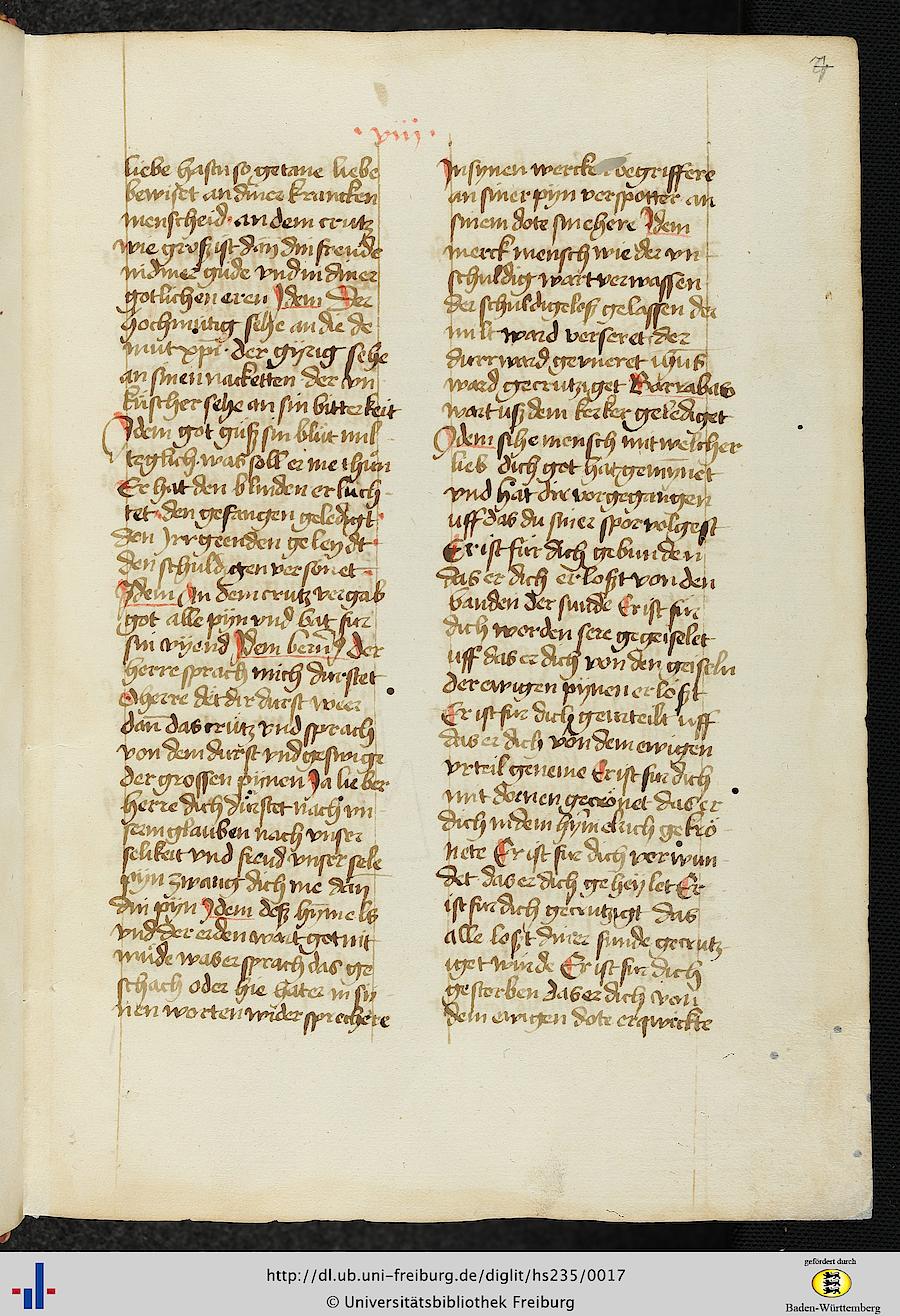 7
· viij ·
liebe hastu so getane liebe
bewiset an diner krancken
menscheid · an dem crutz
wie groß ist dan din freude
in diner gude vnd in diner
gotlichen eren Idem Der
hochmutig sehe an die de
mut xpi · der gyrig sehe
an sinen nacketten der vn
kuscher sehe an sin bitterkeit
Idem got guß sin blut mil
teglich was soll er me thun
Er hat den blinden erluch
tet · den gefangen gelediget ·
den yrrgeenden geleydt ·
den schuldigen versonet
Idem An dem crutz vergab
got alle pijn vnd bat fur
sin vyend Idem bern Der
herre sprach mich durstet
O herre det dir durst weer
dan das crutz vnd sprach
von dem durst vnd geswige
der grossen pijnen Ja lieber
herre dich durstet nach vn
serm glauben nach vnser
selikeit vnd freud vnser sele
pijn zwang dich me dan
din pijn Idem deß hymels
vnd der erden wart get nit
mude was er sprach das ge
schach oder hie hater in sy
nen worten widersprechere
In synen wercken begriffere
an siner pijn verspotter an
sinem dote smehere Idem
merck mensch wie der vn
schuldig wart verwassen
der schuldige loß gelassen der
milt ward verseret der
durr ward gemeret ihus
ward gecrutziget Barrabas
wart uß dem kerker gelediget
Idem sihe mensch mit welcher
lieb dich got hat gemynnet
vnd hat dir vorgegangen
uff das du siner spor volgest
Er ist fur dich gebunden
das er dich erloßt von den
banden der sunde Er ist fur
dich worden sere gegeiselet
uff das er dich von den geiseln
der ewigen pynen erloßt
Er ist fur dich geurteilt uff
das er dich von dem ewigen
vrteil geneme Er ist fur dich
mit dornen gecronet das er
dich in dem hymelrich gekro
nete Er ist fur dich verwun
det das er dich geheylet Er
ist fur dich gecrutzigt das
alle lost diner sunde gecrutz
iget wurde Er ist fur dich
gestorben das er dich von
dem ewigen dote erqwickte
http://dl.ub.uni-freiburg.de/diglit/hs235/0017
© Universitätsbibliothek Freiburg
gefördert durch
Baden-Württemberg